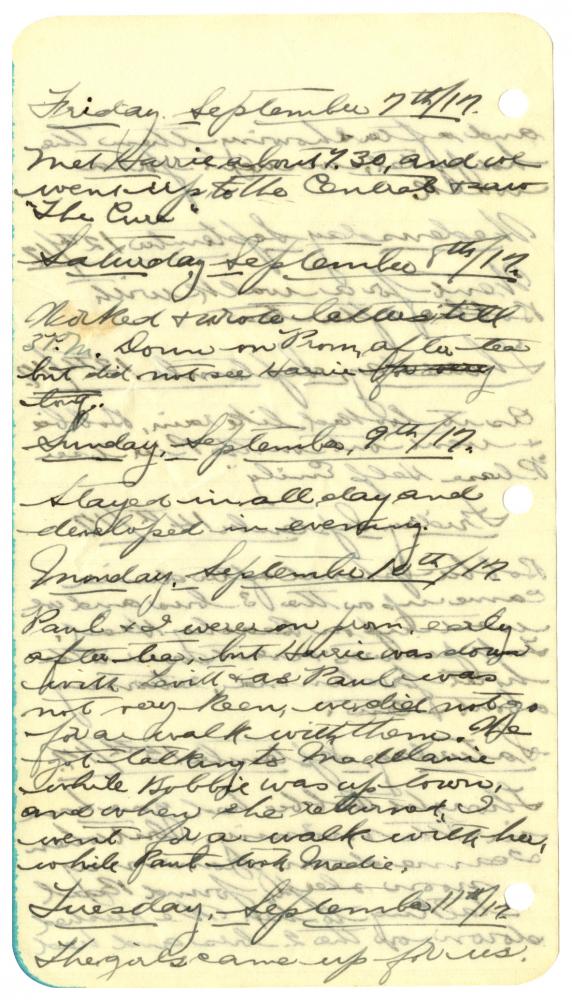 Friday, September 7th/17.
Met Harrie about 7.30, and we
went up to the Central & saw
"The Cure"
Saturday, September 8th/17.
Worked & wrote letters till
3 P.M. Down on Prom, after tea
but did not see Harrie for very
long.
Sunday, September, 9th/17.
Stayed in all day and
developed in evening.
Monday, September 10th/17
Paul & I were on prom, early
after tea, but Harrie was down
with Levitt & as Paul was
not very keen, we did not go
for a walk with them. We
got talking to Madelanie
while Bobbie was up town,
and when she returned, I
went for a walk with her,
while Paul took Madie.
Tuesday, September 11th/17
The girls came up for us.